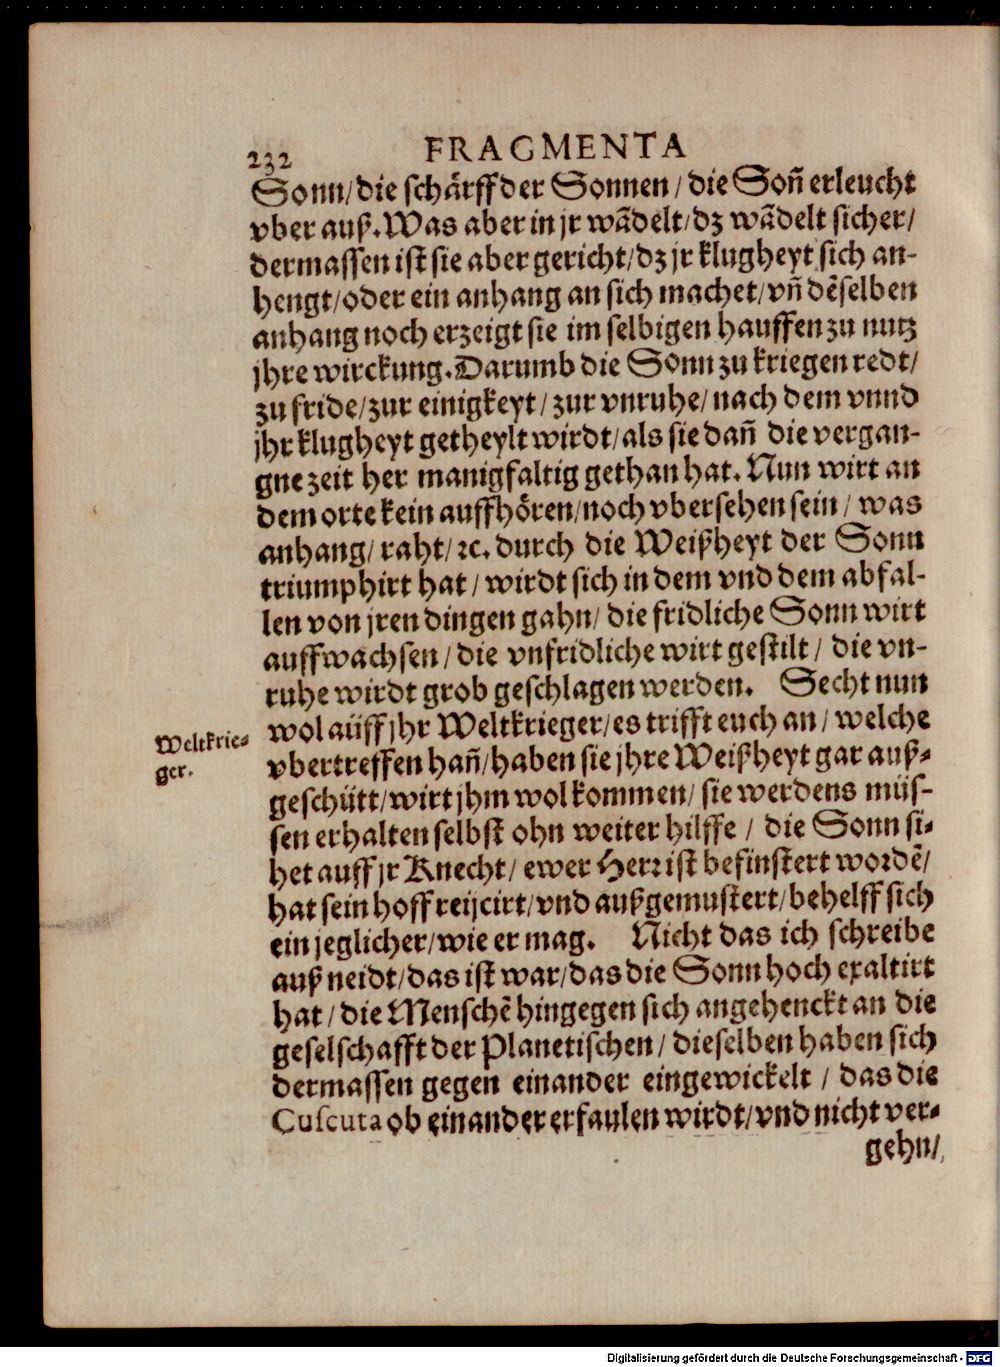 232 FRAGMENTA
Sonn/die schärff der Sonnen/die Soñ erleucht
vber auß. Was aber in jr wãdelt/dz wãdelt sicher/
dermassen ist sie aber gericht/dz jr klugheyt sich an-
hengt/oder ein anhang an sich machet/vñ dẽselben
anhang noch erzeigt sie im selbigen hauffen zu nutz
jhre wirckung. Darumb die Sonn zu kriegen redt/
zu fride/zur einigkeyt/zur vnruhe/nach dem vnnd
jhr klugheyt getheylt wirdt/als sie dañ die vergan-
gne zeit her manigfaltig gethan hat. Nun wirt an
dem orte kein auffhören/noch vbersehen sein/was
anhang/raht/ꝛc. durch die Weißheyt der Sonn
triumphirt hat/wirdt sich in dem vnd dem abfal-
len von jren dingen gahn/die fridliche Sonn wirt
auffwachsen/die vnfridliche wirt gestilt/die vn-
ruhe wirdt grob geschlagen werden. Secht nun
wol auff jhr Weltkrieger/es trifft euch an/welche
Weltkrie-
ger.
vbertreffen hañ/haben sie jhre Weißheyt gar auß-
geschütt/wirt jhm wol kommen/sie werdens müs-
sen erhalten selbst ohn weiter hilffe/die Sonn si-
het auff jr Knecht/ewer Herr ist befinstert wordẽ/
hat sein hoff reijcirt/vnd außgemustert/behelff sich
ein jeglicher/wie er mag. Nicht das ich schreibe
auß neidt/das ist war/das die Sonn hoch exaltirt
hat/die Menschẽ hingegen sich angehenckt an die
geselschafft der Planetischen/dieselben haben sich
dermassen gegen einander eingewickelt/das die
Cuscuta ob einander erfaulen wirdt/vnd nicht ver-
gehn/
Digitalisierung gefördert durch die Deutsche Forschungsgemeinschaft - DFG